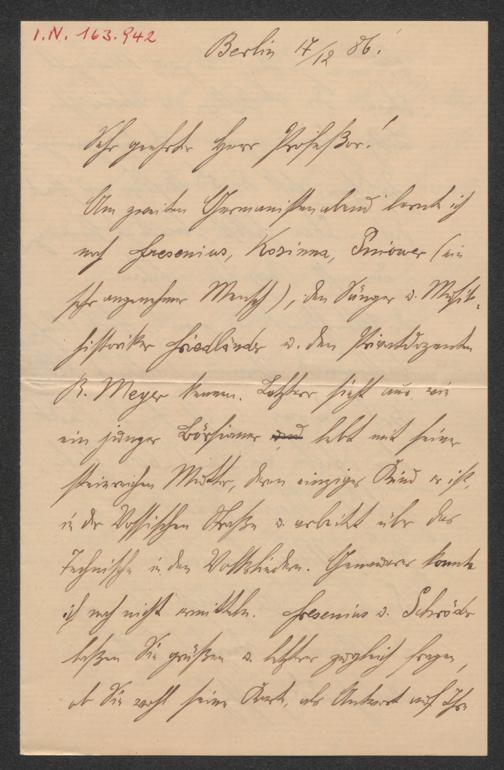 I.N. 163.942
Berlin 17/12 86.
Sehr geehrter Herr Professor!
Am zweiten Germanistenabend lernte ich
noch Fresenius, Kossinna, Pniower (ein
sehr angenehmer Mensch), den Sänger u. Musik-
historiker Friedländer u. den Privatdozenten
R. Meyer kennen. Letzterer sieht aus wie
ein junger Börsianer und lebt mit seiner
steinreichen Mutter, deren einziges Kind er ist,
in der Vossischen Straße u. arbeitet über das
Technische in den Volksliedern. Genaueres konnte
ich noch nicht ermitteln. Fresenius u. Schröder
laßen Sie grüßen u. letzterer zugleich fragen,
ob Sie wohl seine Karte, als Antwort auf Ihre